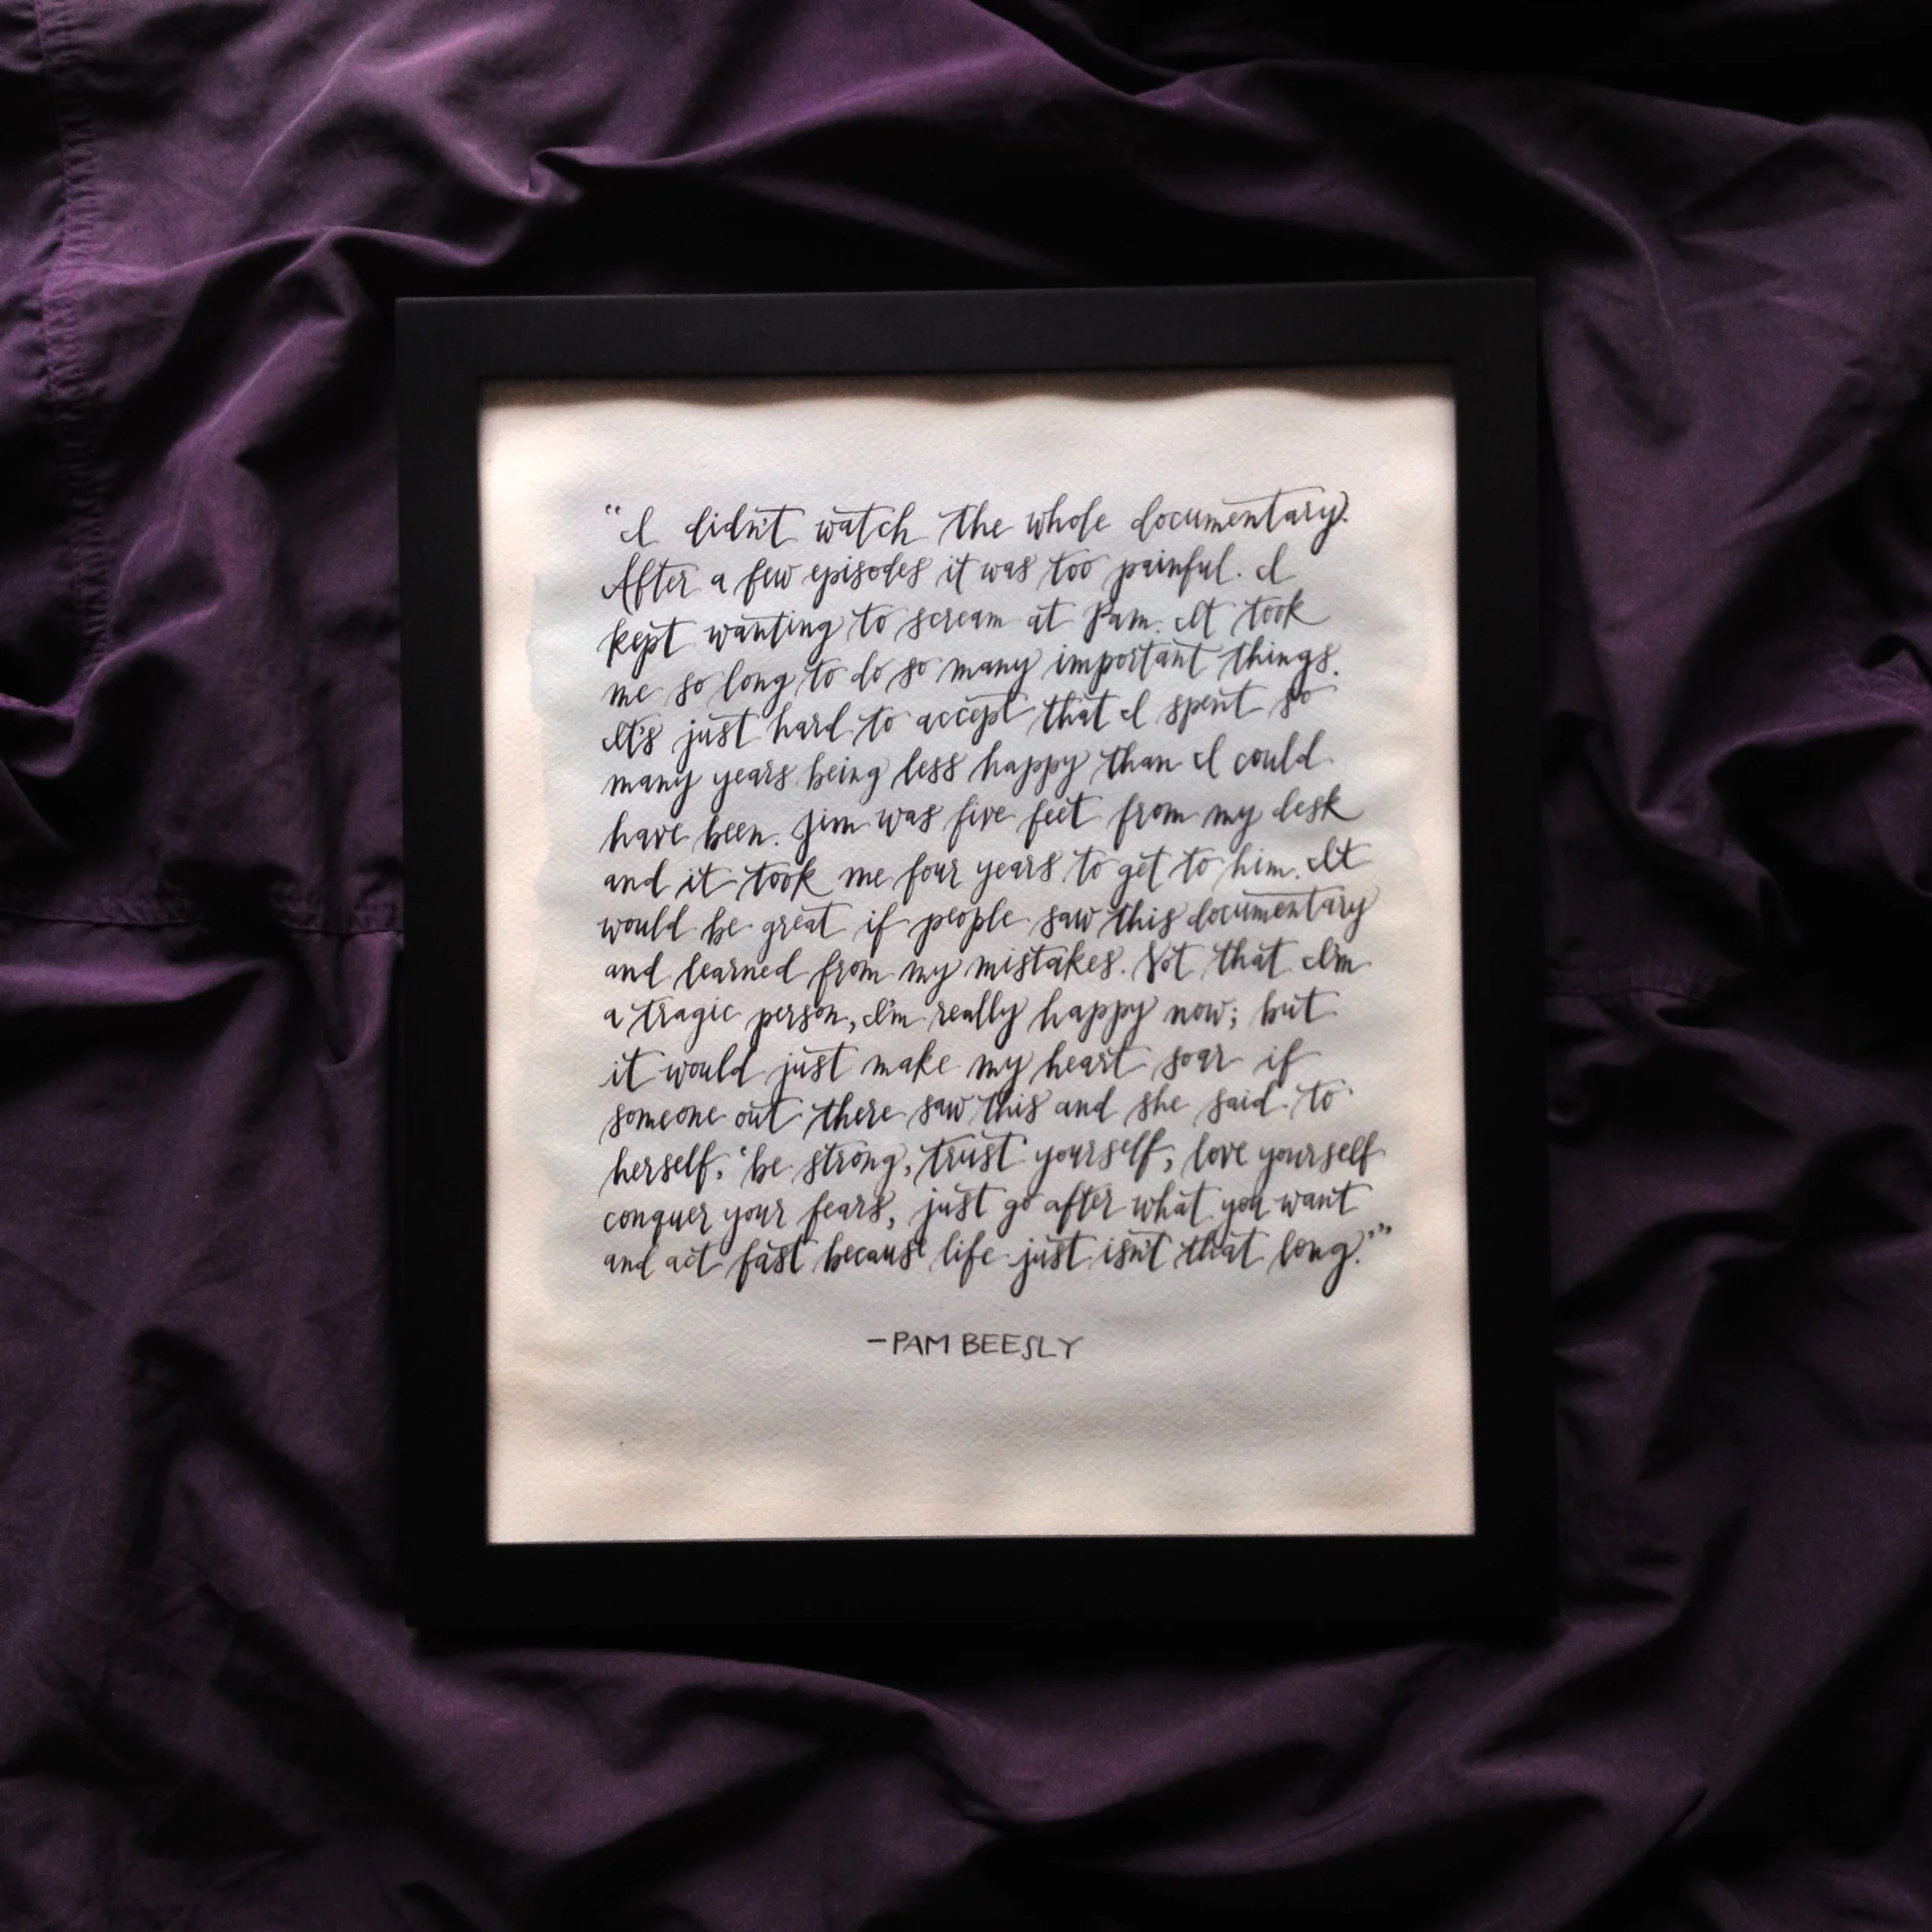 "I didn't watch the whole documentary.
After a few episodes it was too painful. I
kept wanting to scream at Pam. It took
me so long to do so many important things.
It's just hard to accept that I spent so
many years being less happy than I could
have been. Jim was five feet from my desk
and it took me four years to get to him. It
would be great if people saw this documentary
and learned from my mistakes. Not that I'm
a tragic person, I'm really happy now; but
it would just make my heart soar if
someone out there saw this and she said to
herself, 'be strong, trust yourself, love yourself
conquer your fears, just go after what you want
and act fast because life just isn't that long.'"
-PAM BEESLY